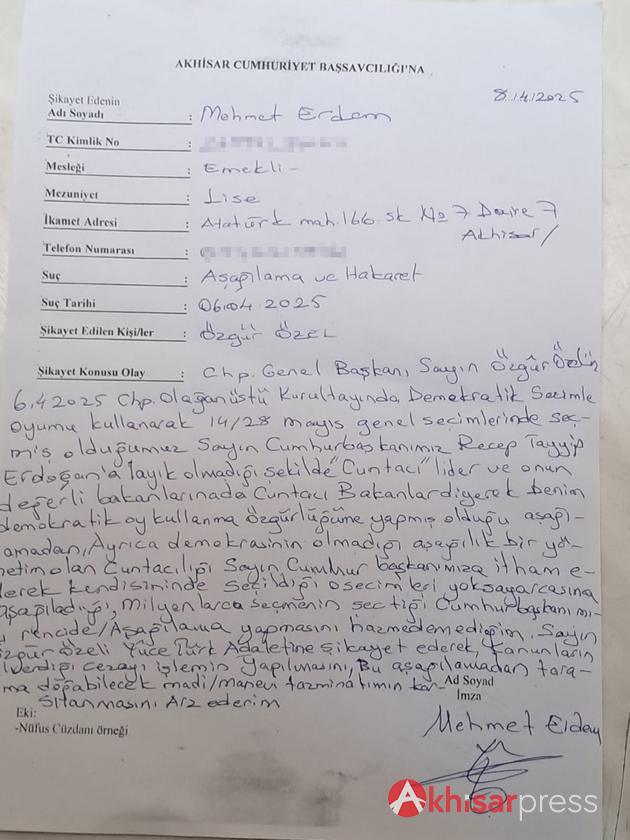 AKHİSAR CUMHURİYET BAŞSAVCILIĞI'NA
8.4.2025
Şikayet Edenin
Adı Soyadı : Mehmet Erdem
TC Kimlik No :
Mesleği : Emekli -
Mezuniyet : Lise
İkamet Adresi : Atatürk mah. 166. sk No 7 Daire 7
Akhisar/
Telefon Numarası :
Suç : Aşağılama ve Hakaret
Suç Tarihi : 06.04.2025
Şikayet Edilen Kişi/ler : Özgür ÖZEL
Şikayet Konusu Olay : Chp. Genel Başkanı Sayın Özgür Özelin
6.4.2025 Chp. Olağanüstü Kurultayında Demokratik Secimle
oyumu kullanarak 14/28 mayıs genel seçimlerinde seç-
miş olduğumuz Sayın Cumhurbaşkanımız Recep Tayyip
Erdoğan'a layık olmadığı şekilde "Cuntacı" lider ve onun
değerli bakanlarınada Cuntacı Bakanlar diyerek benim
demokratik oy kullanma özgürlüğüme yapmış olduğu aşağı-
lamadan, Ayrıca demokrasinin olmadığı aşağılık bir yö-
netim olan Cuntacılığı Sayın Cumhur başkanımıza itham e-
derek kendisininde seçildiği o secimleri yoksayarcasına
aşağıladığı, milyonlarca seçmenin seçtiği Cumhurbaşkanımı-
rencide/Aşağılama yapmasını hazmedemediğim, Sayın
Özgür özeli Yüce Türk Adaletine şikayet ederek, Kanunların
verdiği cezayı işlemin yapılmasını, Bu aşağılamadan tara-
ma doğabilecek madi/manevi tazminatımın kar-
şılanmasını Arz ederim
Ad Soyad
İmza
Eki:
-Nüfus Cüzdanı örneği
Mehmet Erdem
Akhisarpress